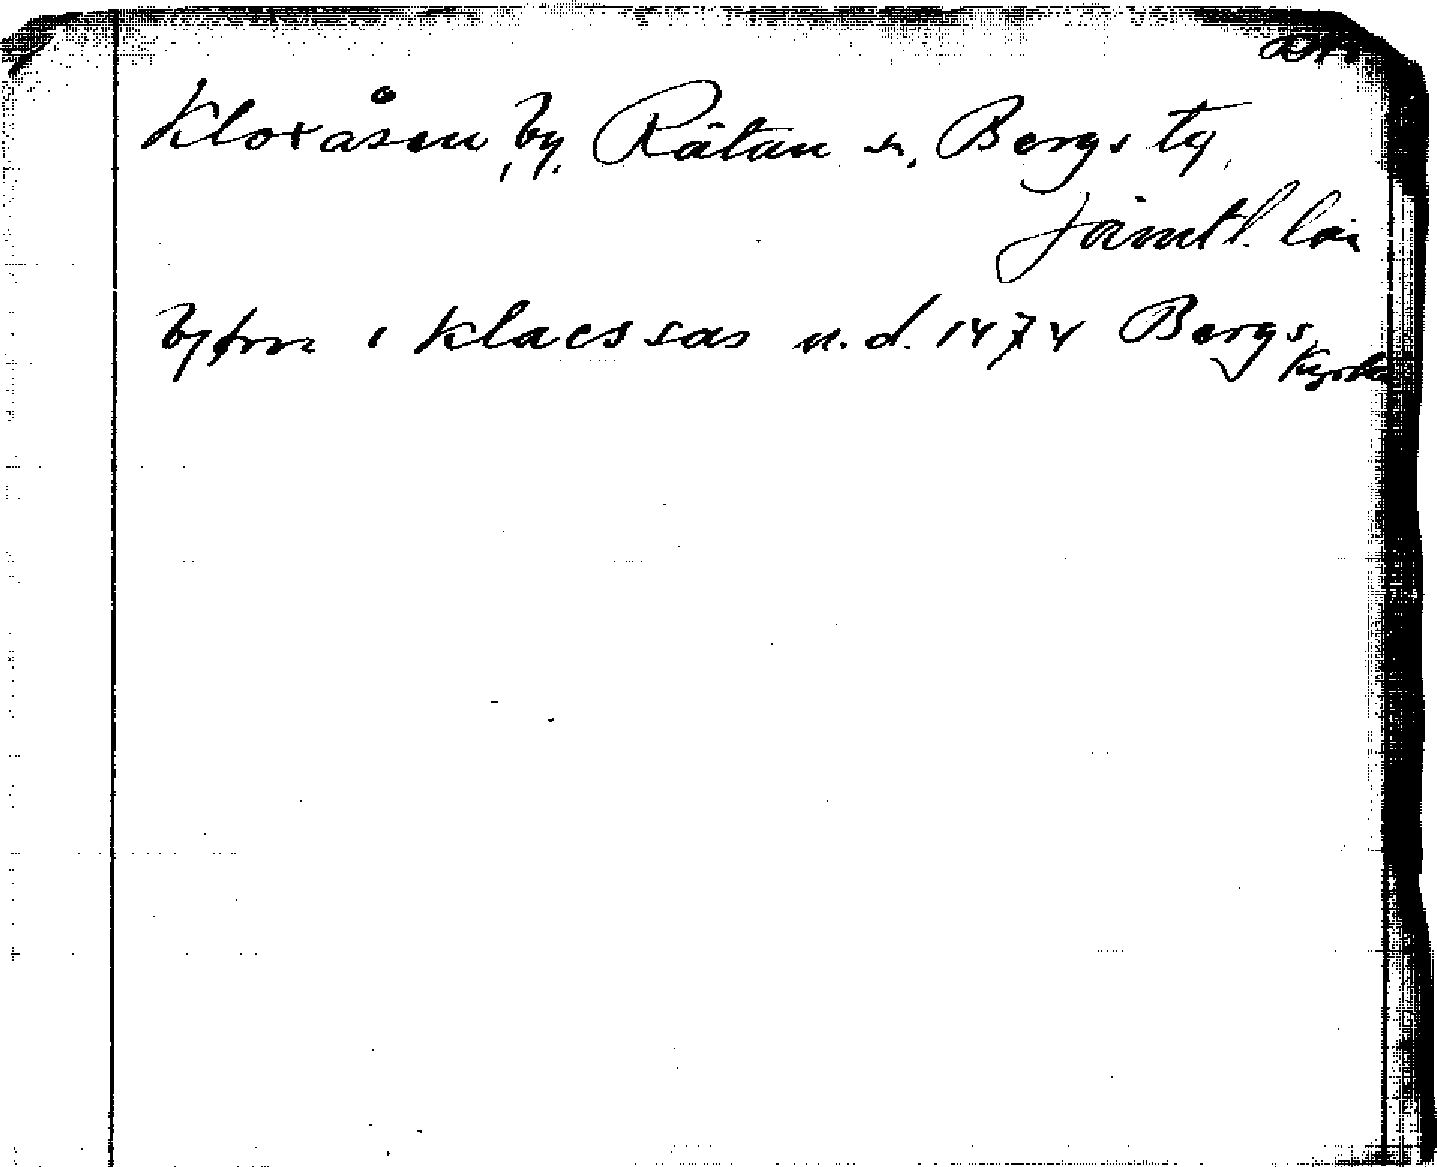 Kloxåsen, by, Rätan sn, Bergs tg,
Jämtl. län
i Klacssas n.d. 1474 Bergs
Kyrka